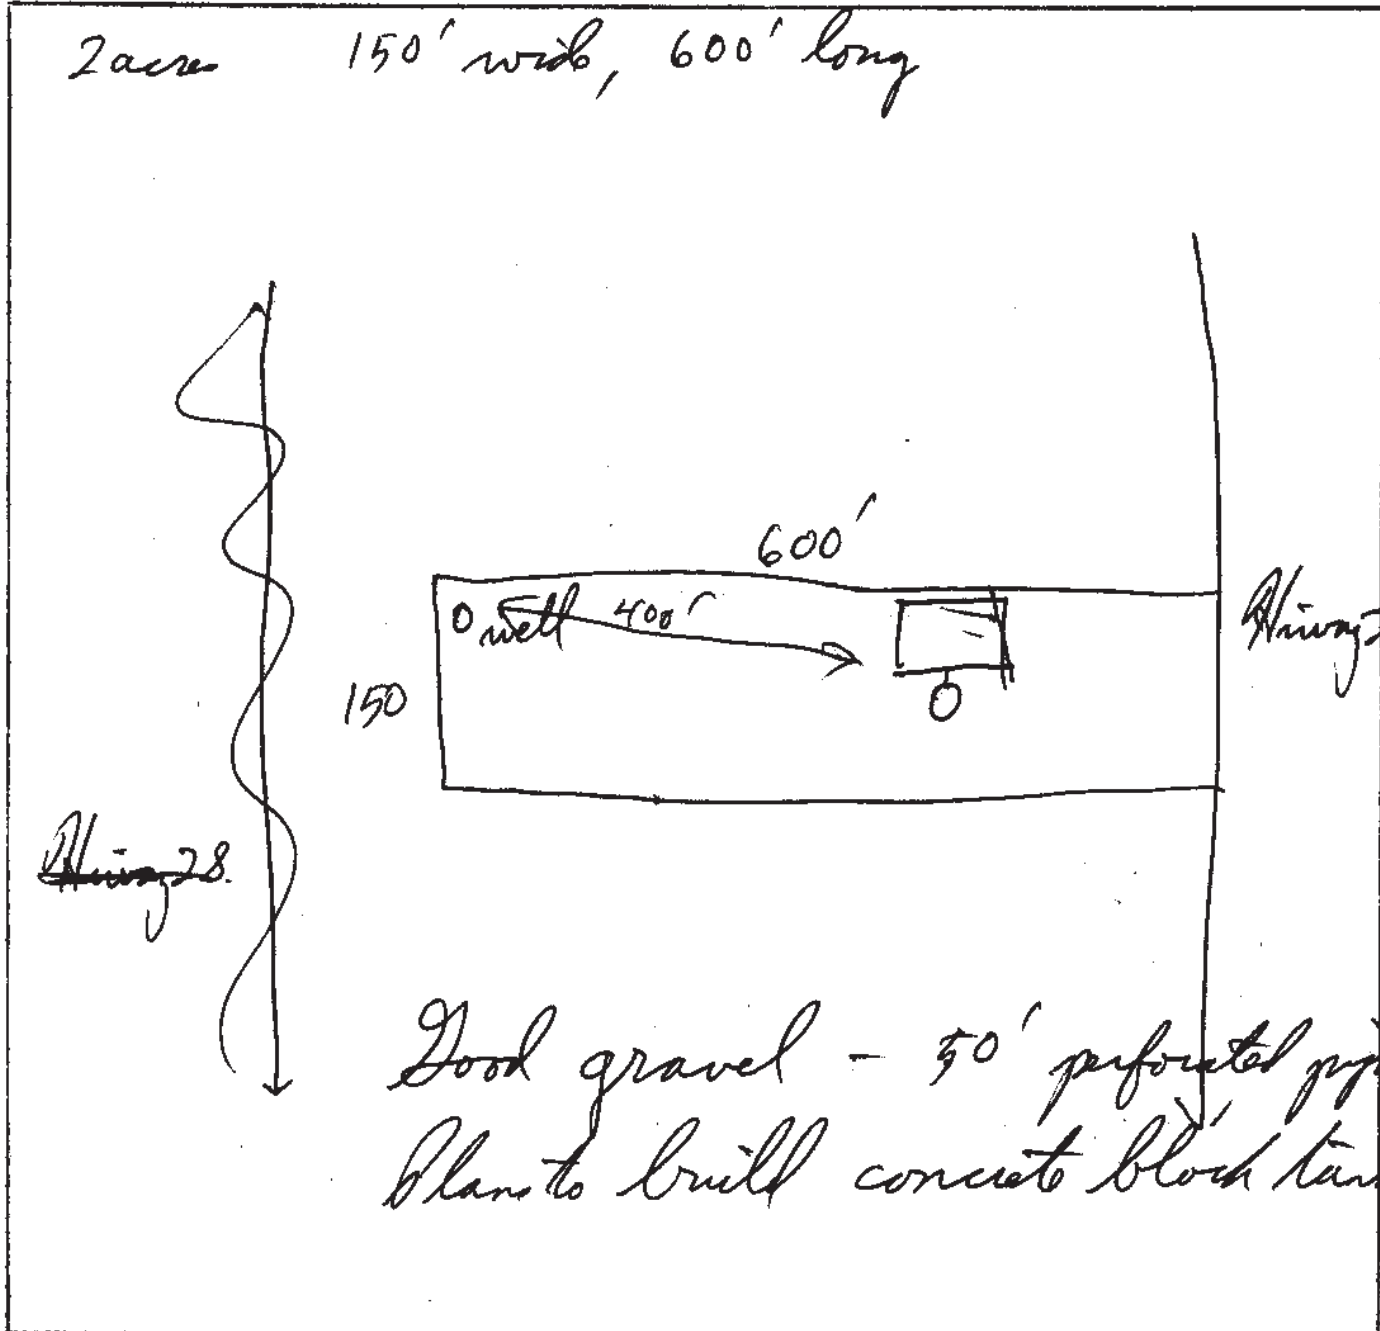 2 acres 150' wide, 600' long
600'
O well 400'
150
Hiway
Hiway 28.
Good gravel - 50' perforated
Plans to build concrete block